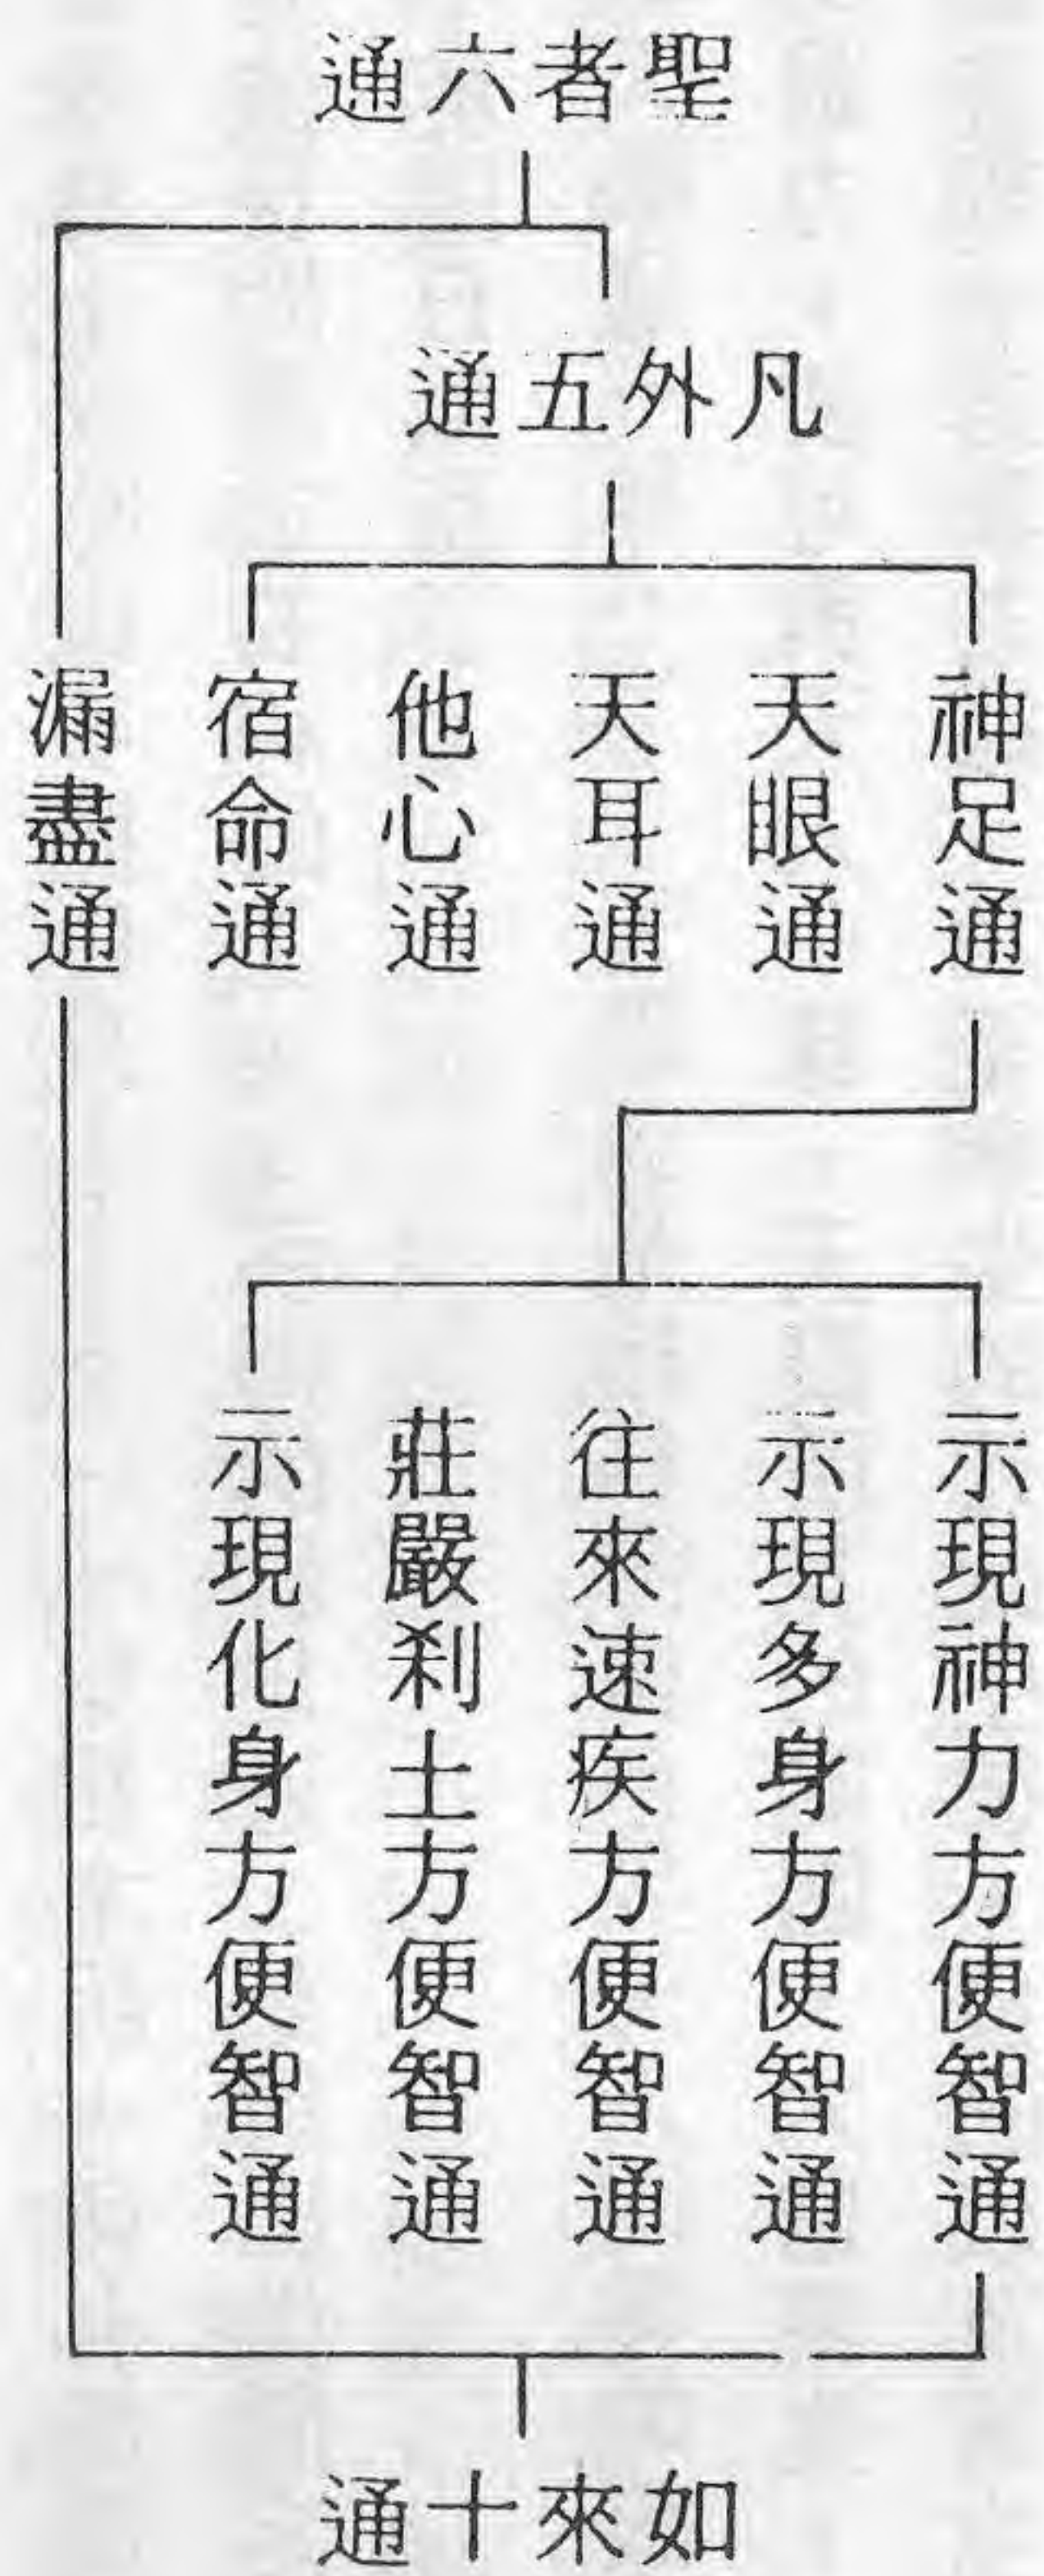 聖者六通
凡外五通
神足通
天眼通
天耳通
他心通
宿命通
漏盡通
示現神力方便智通
示現多身方便智通
往來速疾方便智通
莊嚴刹土方便智通
示現化身方便智通
如來十通